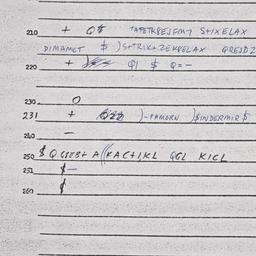 210 + Q$ TATETKPEJEM7 S+IXELAX
DIMAMET $ )S+TRIX+ZEKPELAX QREJDZ
220 + QI $ Q=-
230 O
231 + )-+AMORN )$INDERMIR$
240 -
250 $ Q GSEB+ A((KAC+IKL QGL KICL
251 $-
260 $